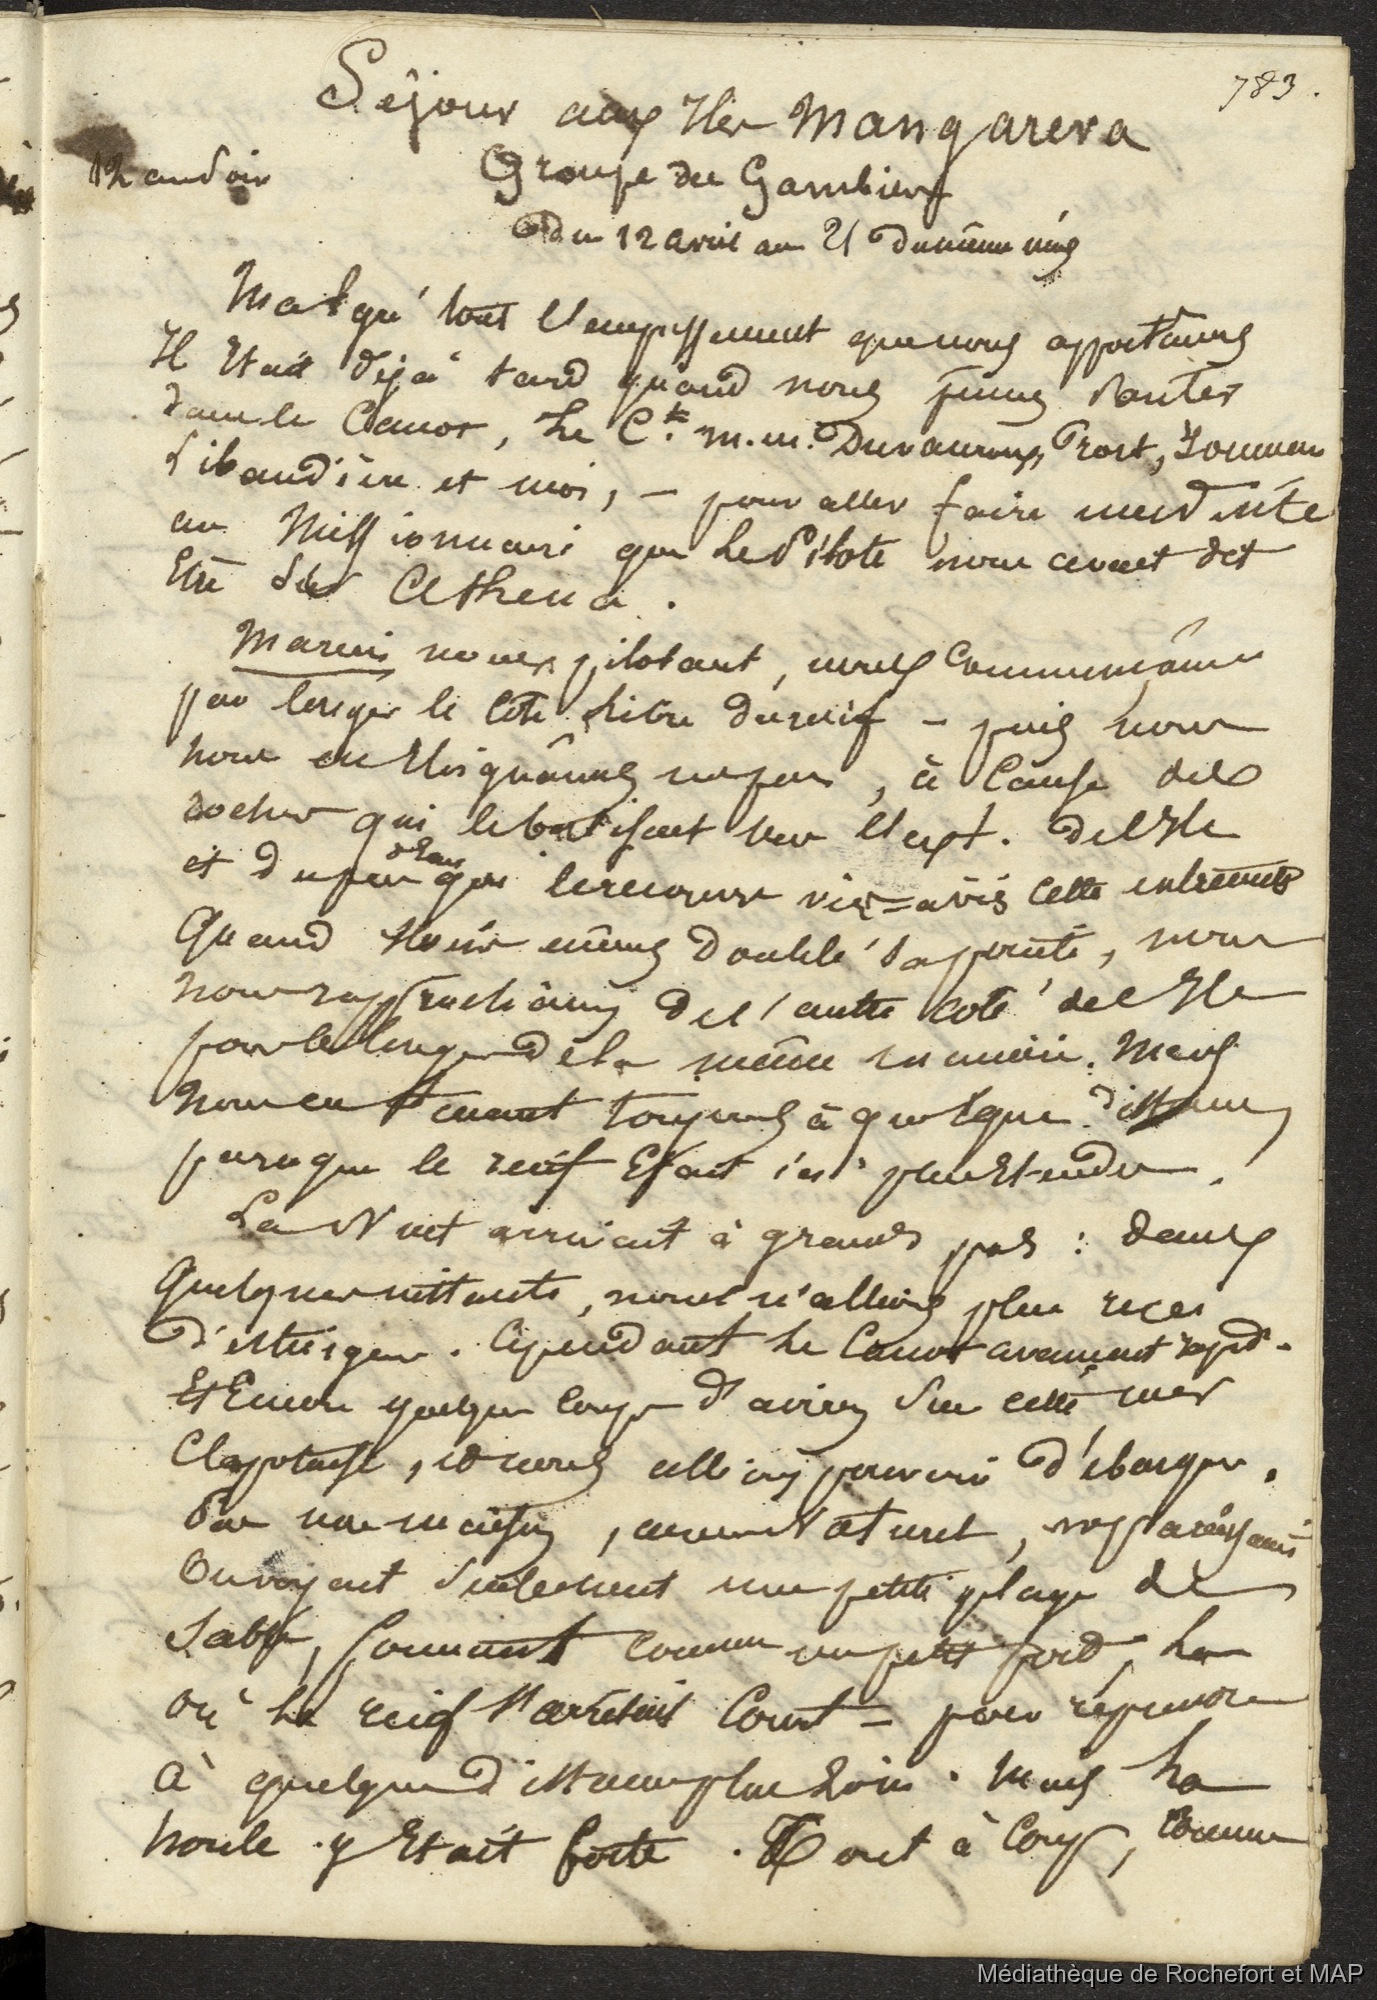 783.
Séjour aux Iles Mangareva
12 au soir
Groupe des Gambiers
du 12 avril au 21 du même mois
Malgré tout l'empressement que nous apportâmes
Il Etait déjà tard quand nous pumes sauter
dans le Canot, Le C.te m.m. Duvauroux, Prost, Jouneau
Libaudière et moi, – pour aller faire une visite
au Missionnaire que Le Pilote nous avait dit
Etre sur Akhena.
Marius nous pilotant, nous Commençâmes
par longer le Coté libre du récif – puis nous
nous en Eloignâmes un peu, à Cause des
rocher qui le bortissent vers l'Est. de l'Ile
et du peu d'Eau qui le recouvre vis=avis cette extrémité
Quand nous eumes doublé sa pointe, nous
nous rapprochâmes de l'autre coté de l'Ile
pour le longer de la même manière. Mais
nous en tenant toujours à quelque distance,
parce que le récif Etait ici plus Etendu.
La Nuit arrivait à grands pas : dans
Quelques instants, nous n'allions plus rien
distinguer. Cependant Le Canot avançait rapid.
Et Encore quelques Coups d'aviron Sur cette mer
Clapoteuse, et nous allions pouvoir débarquer.
Par une maison, aucun Naturel, n'apparaissait
On voyait seulement une petite plage de
Sable, formant comme un petit port, La
où Le recif s'arrêtait Court – pour reprendre
à quelque distance plus Loin. Mais La
houle y Etait forte. Tout à Coup, Comme
Médiathèque de Rochefort et MAP